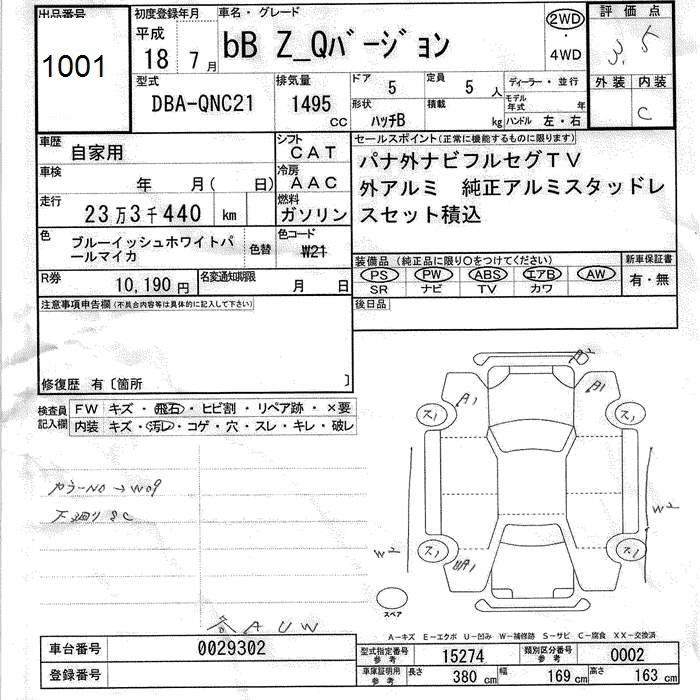 出品番号 初度登録年月 車名・グレード 評価点
1001 平成 18 7月 bB Z_Qバージョン 2WD・4WD 3.5
型式 排気量 ドア 5 定員 5人 ディーラー・並行 外装 内装
DBA-QNC21 1495 CC 形状 ハッチB 積載 kg モデル年式 年 ハンドル 左・右 C
車歴 自家用 シフト CAT セールスポイント(正常に機能するものに限ります)
車検 年 月( 日) 冷房 AAC パナ外ナビフルセグTV
走行 23万3千440 km 燃料 ガソリン 外アルミ 純正アルミスタッドレ
スセット積込
色 ブルーイッシュホワイトパ 色替 色コード W21
ールマイカ
装備品(純正品に限り○をつけてください) 新車保証書
PS PW ABS エアB AW 有・無
SR ナビ TV カワ
R券 10,190円 名変通知期限 月 日
注意事項申告欄(不具合内容等は具体的に記入して下さい) 後日品
修復歴 有〔箇所 〕
検査員記入欄 FW キズ・飛石・ヒビ割・リペア跡・×要
内装 キズ・汚レ・コゲ・穴・スレ・キレ・破レ
A1 A1
ス1 ス1
カラーNO→W09
下廻りSC
W2 W2
ス1 ス1
スペア
A U W
A-キズ E-エクボ U-凹み W-補修跡 S-サビ C-腐食 XX-交換済
車台番号 0029302 型式指定番号 参考 15274 類別区分番号 参考 0002
登録番号 車庫証明用 参考 長さ 380cm 幅 169cm 高さ 163cm